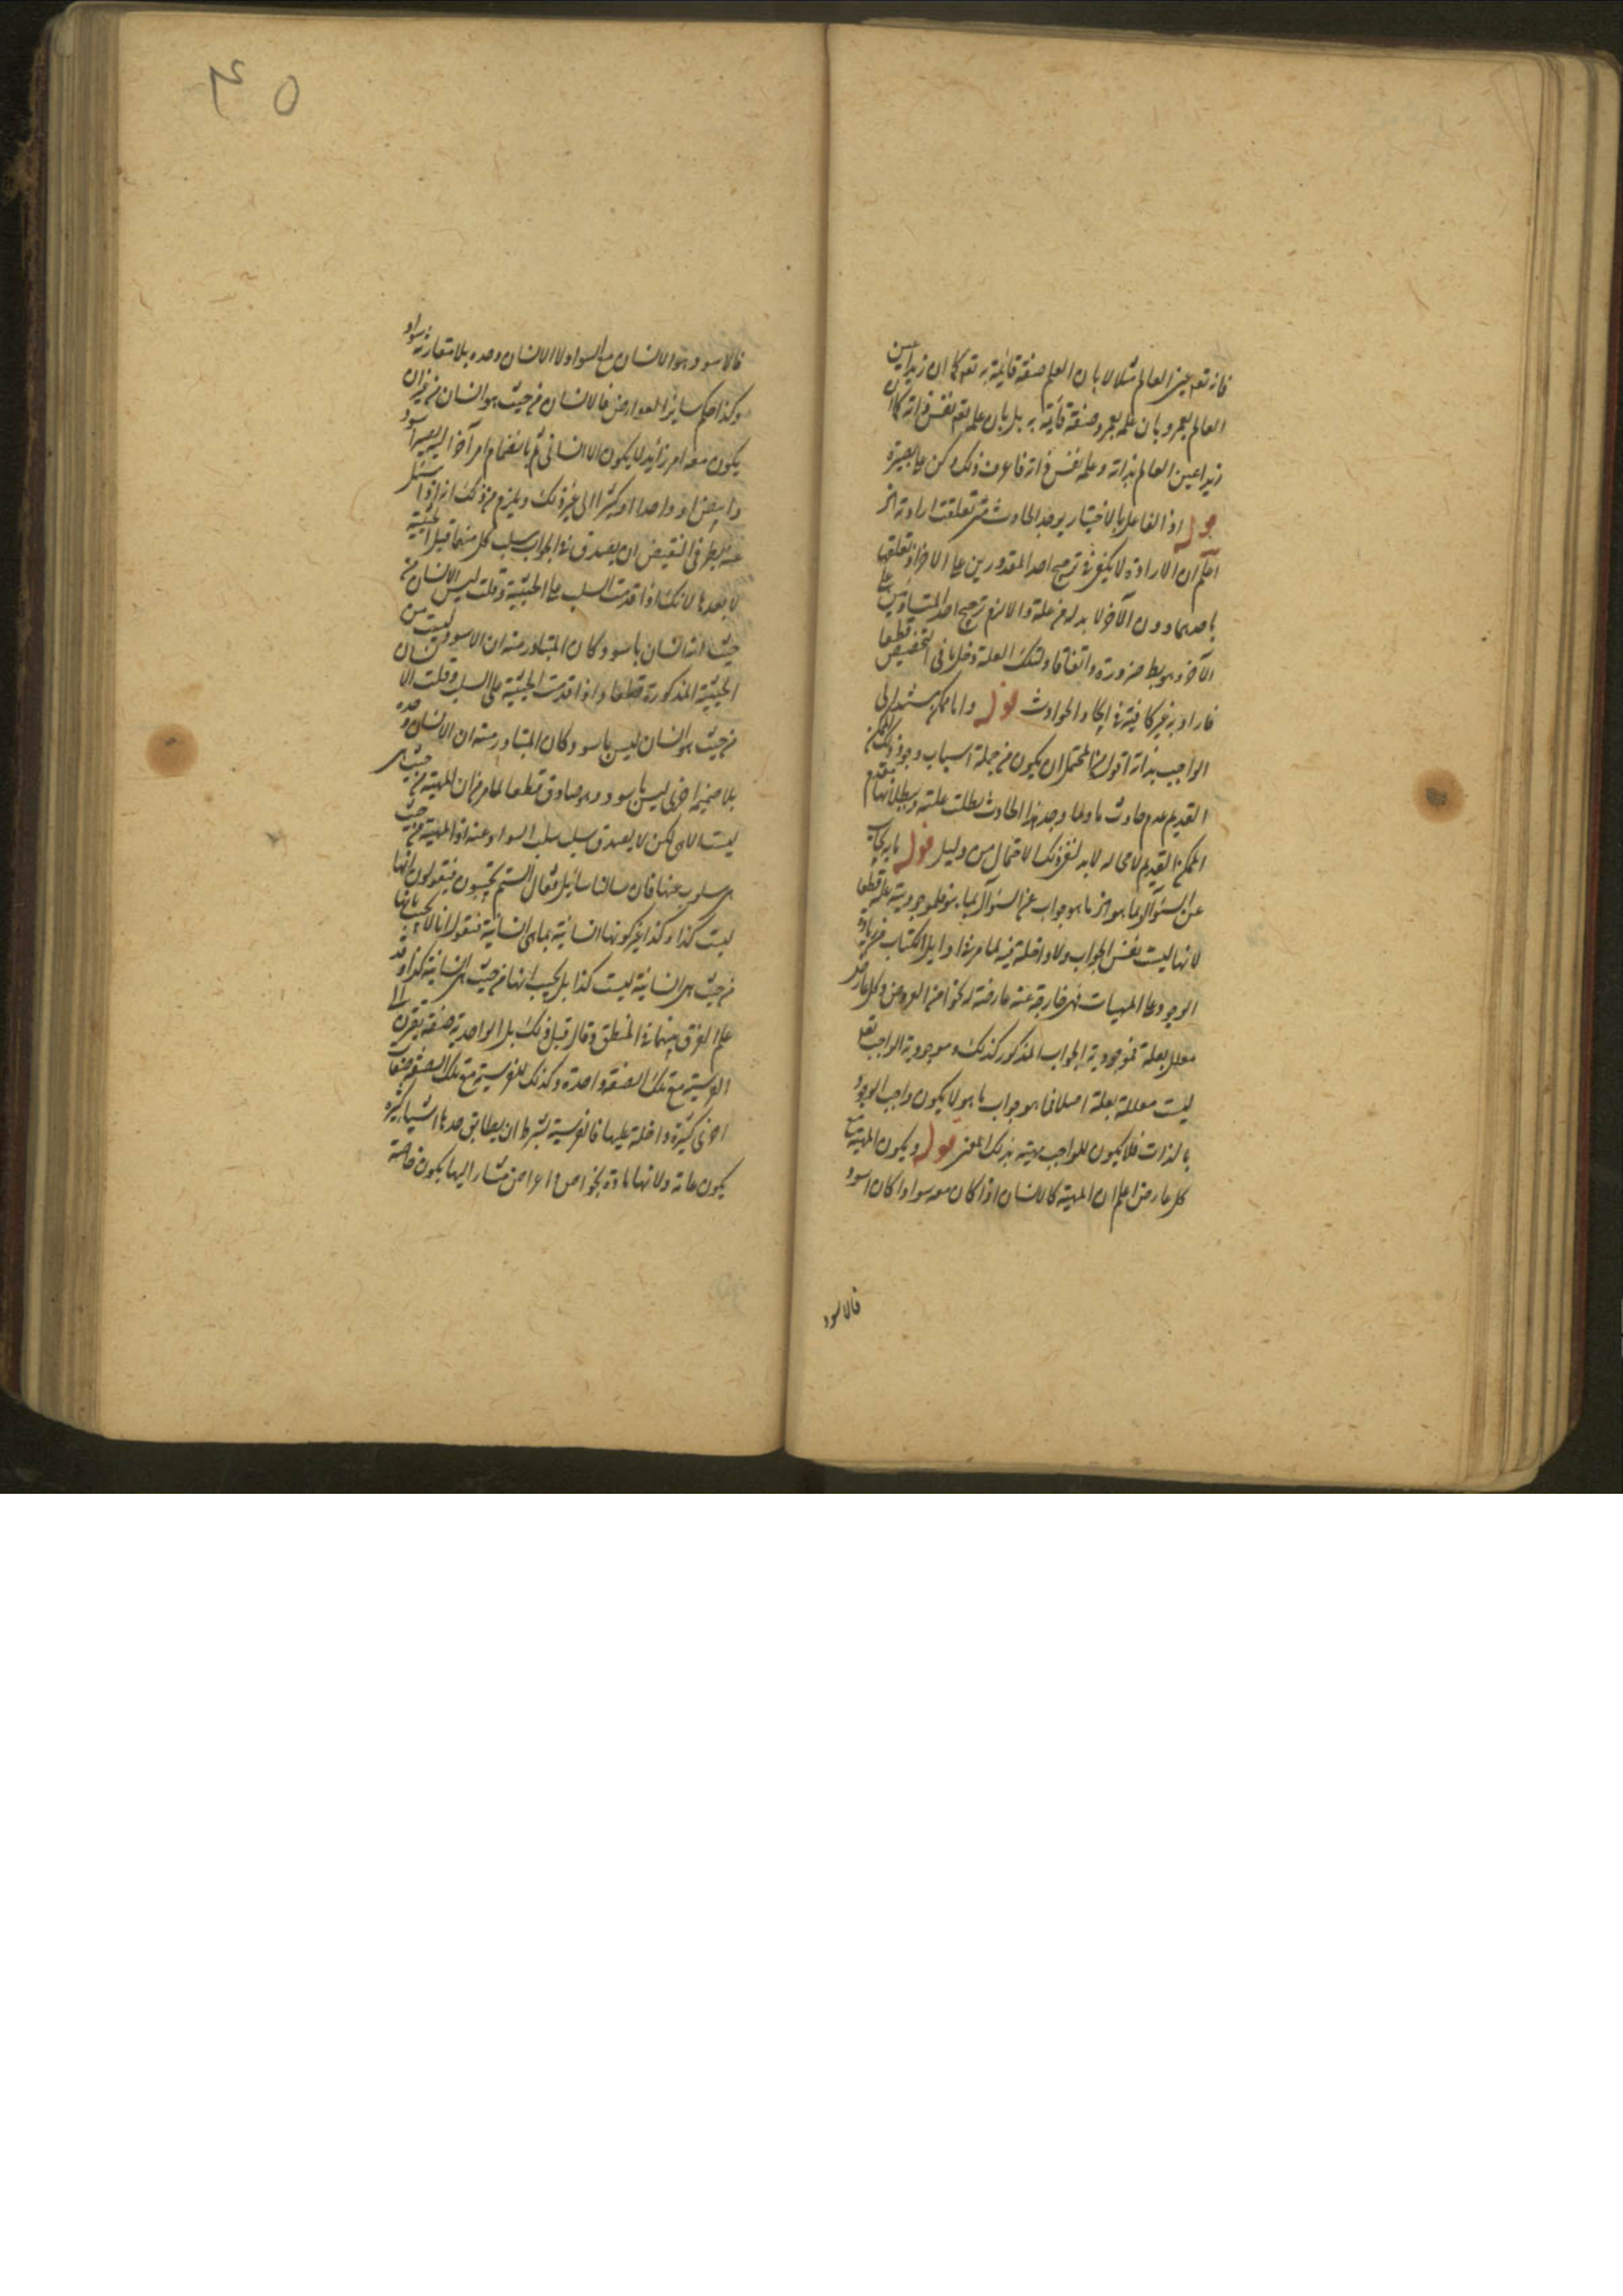 فانه تعه عين العالم مثلا لا بان العلم صفة قائمة به تعه كما ان زيدا عين
العالم بعمرو بان علمه بعمرو صفة قائمة به بل بان علمه تعه نفس ذاته كما ان
زيدا عين العالم بذاته وعلمه نفس ذاته فاعرف ذلك وكن على بصيرة
قوله اذ الفاعل بالاختيار يوجد الحادث متى تعلقت ارادته الخ
اعلم ان الارادة لا يكفى فى ترجيح احد المقدورين على الاخر اذ تعلقها
باحدهما دون الآخر لا بد له من علة والا لزم ترجيح احد المتساويين على
الآخر وهو بط ضرورة واتفاقا ولتلك العلة دخل ما فى التخصيص قطعا
فارادته غير كافية فى ايجاد الحوادث قوله واما ممكن يستند الى
الواجب بذاته اقول من المحتمل ان يكون من جملة اسباب وجود ذلك الممكن
القديم عدم حادث ما ولما وجد هذا الحادث بطلت علته وببطلانها ينعدم
الممكن القديم لا محاله لا بد لنفى ذلك الاحتمال من دليل قوله ما به يجاب
عن السؤال بما هو الخ ما هو جواب عن السؤال بما هو فله موجودية علة قطعا
لانها ليست نفس الجواب ولا داخلة فيه لما مر فى اوايل الكتاب من زيادة
الوجود على المهيات فهى خارجة عنه عارضة له نحوا من العروض وكل عارض
معلل بعلة فموجودية الجواب المذكور كذلك وموجودية الواجب تعه
ليست معللة بعلة اصلا فما هو جواب ما هو لا يكون واجب الوجود
بالذات فلا يكون للواجب مهية بذلك المعنى قوله ويكون المهية مع
كل عارض اعلم ان المهية كالانسان اذا كان معه سواد كان اسود
فالاسود
٤٥
فالاسود هو الانسان مع السواد لا الانسان وحده بلا مقارنة سواد
وكذا حكم ساير العوارض فالانسان من حيث هو انسان من غير ان
يكون معه امر زائد لا يكون الا انسانا ثم بانضمام امر آخر اليه يصير اسود
وابيض او واحدا او كثيرا الى غير ذلك ويلزم من ذلك انه اذا سئل
عنه بطرفى النقيض ان يصدق فى الجواب سلب كل منهما قبل الحيثية
لا بعدها لانك اذا قدمت السلب على الحيثية وقلت ليس الانسان من
حيث انه انسان باسود وكان المتبادر منه ان الاسود ليست من
الحيثية المذكورة قطعا واذا قدمت الحيثية على السلب وقلت الانسان
من حيث هو انسان ليس باسود وكان المتبادر منه ان الانسان وحده
بلا ضميمة اخرى ليس باسود وهو صادق قطعا لما مر من ان المهية من حيث هى
ليست الا هى لكن لا يصدق سلب سلب السواد عنه اذ المهية من حيث
هى سلوب عنها فان سالنا سائل فقال الستم تجيبون فيقولون انها
ليست كذا وكذا غير كونها انسانية بما هى انسانية فنقول انا لا نجيب بانها
من حيث هى انسانية ليست كذا بل نجيب انها من حيث هى انسانية كذا وقد
علم الفرق بينهما فى المنطق وقال قبل ذلك بل الواحدية صفة يقترن الى
الفرسية مع تلك الصفة واحدة وكذلك للفرسية مع تلك الصفة صفات
اخرى كثيرة داخلة عليها فالفرسية بشرط ان يطابق حدها اشياء كثيرة
يكون عامة ولانها ماخوذة بخواص واعراض مشار اليها يكون خاصة